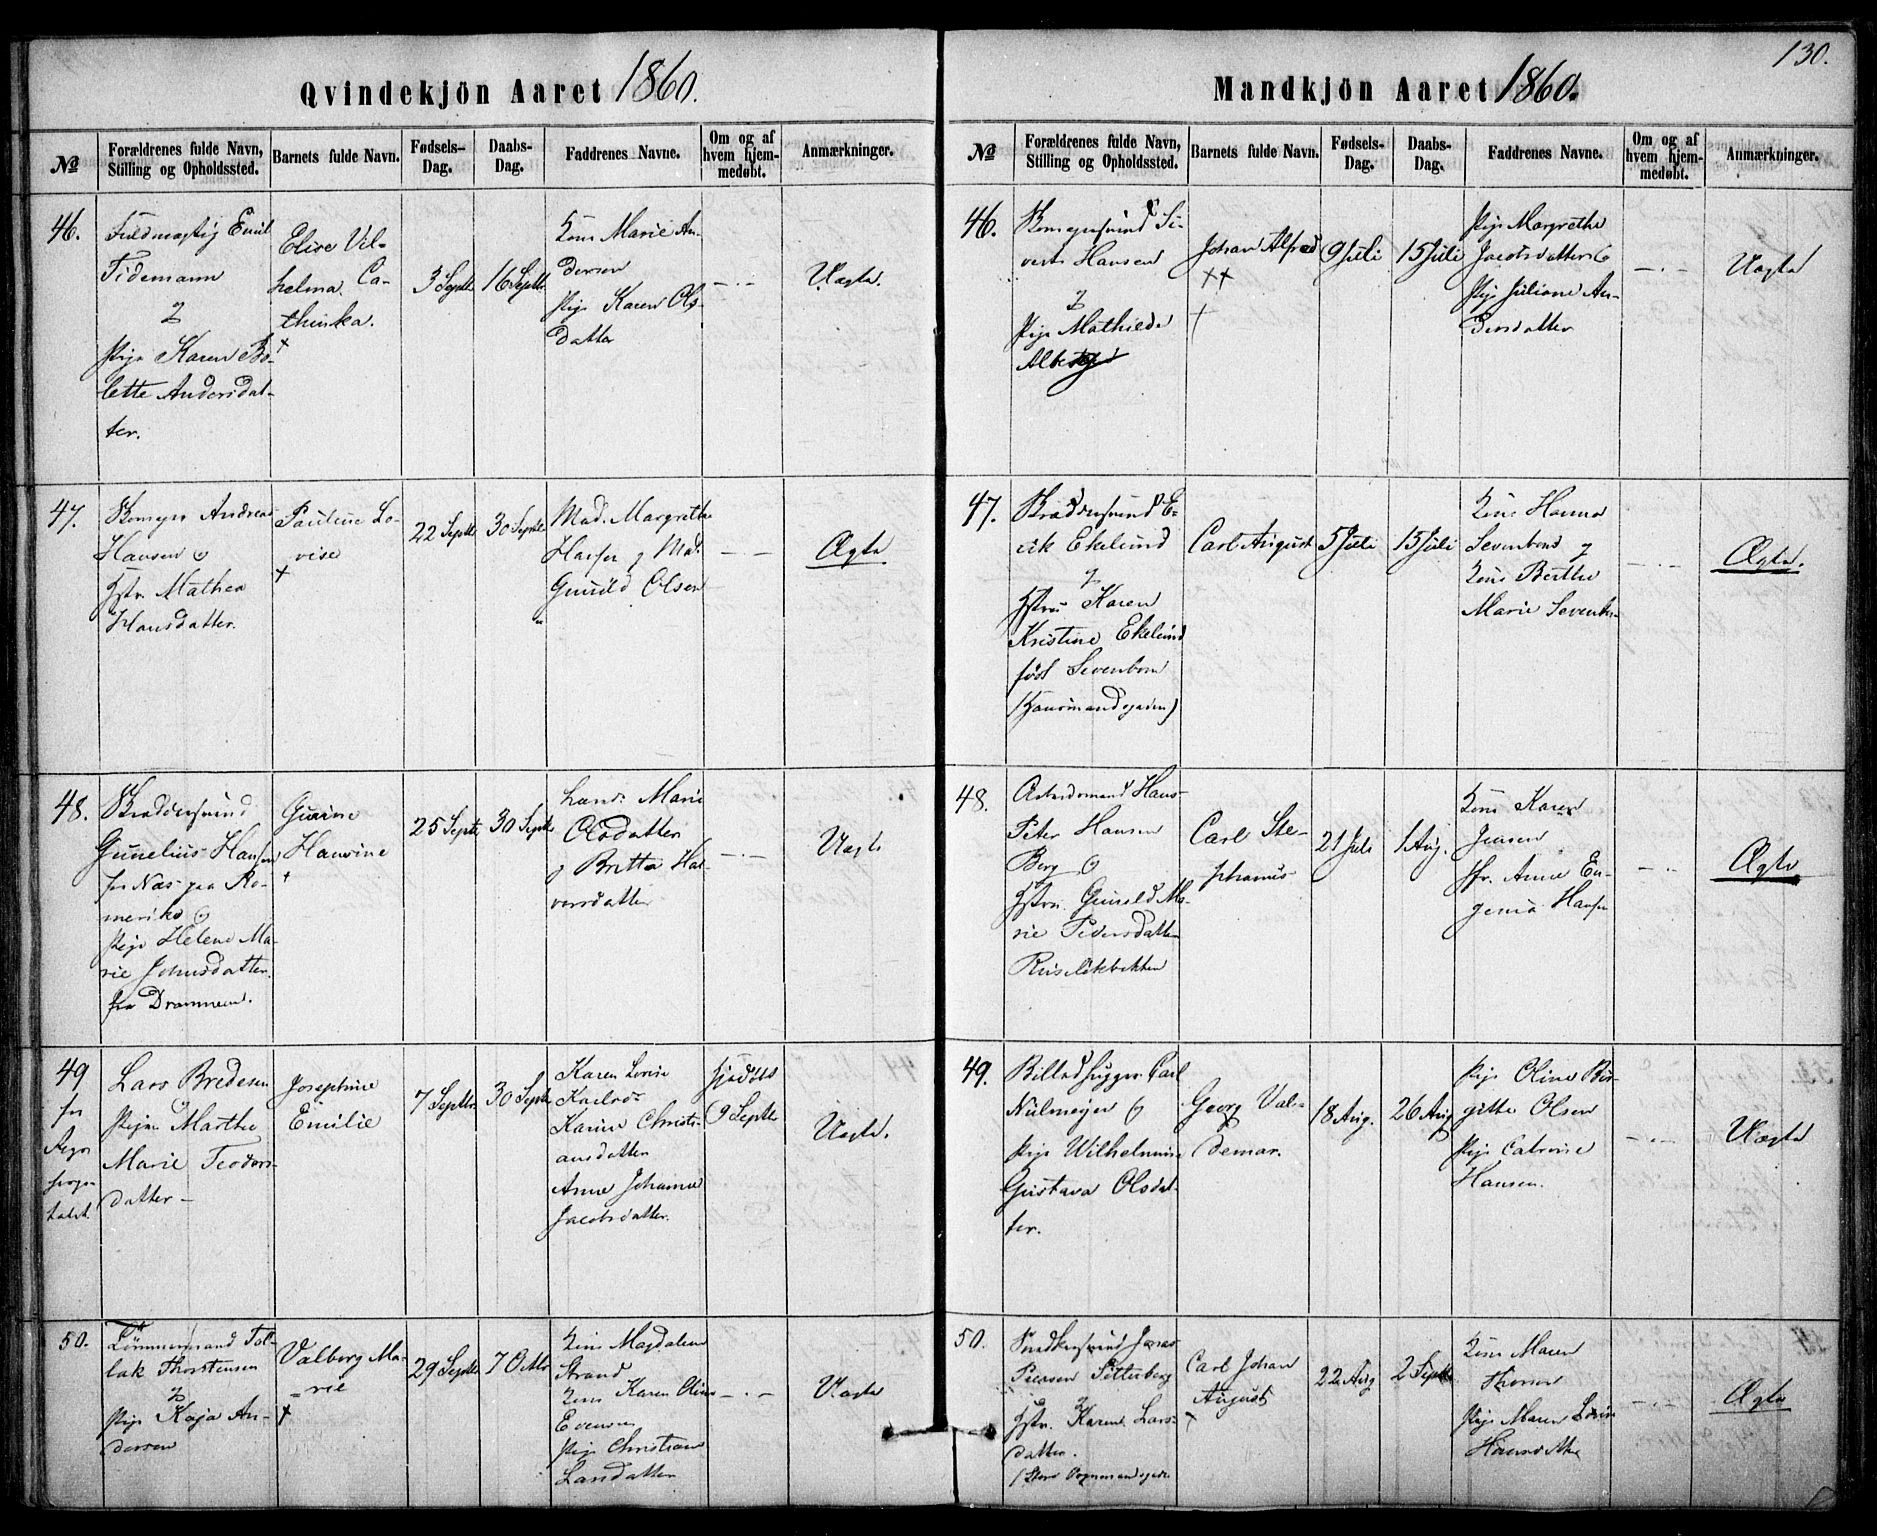 130.
Qvindekjön Aaret 1860.
No
Forældrenes fulde Navn, Stilling og Opholdssted.
Barnets fulde Navn.
Fødsels-Dag.
Daabs-Dag.
Faddrenes Navne.
Om og af hvem hjemmedøbt.
Anmærkninger.
46.
Fuldmægtig Emil
Tidemann
Pige Karen Bo-
lette Andersdat-
ter.
Elise Vil-
helma Ca-
thinka.
3 Septbr
16 Septbr
Kone Marie An-
dersen
Pige Karen Ols-
datter
Uægte.
47.
Andreas
Hansen &
Hstr. Mathea
Hansdatter.
Pauline Lo-
vise
22 Septbr
30 Septbr
Mad. Margrethe
Hansen & Mad.
Gunild Olsen
Ægte
48.
Skräddersvend
Gunelius Hansen
fra Næs paa Ro-
merike &
Pige Helene Ma-
rie Johnsdatter
fra Drammen.
Gusine
Hansine
25 Septr
30 Septbr
Marie
Olsdatter
& Britta Hal-
vorsdatter
Uægte
49
Lars Bredesen
Pige Marthe
Marie Teodors-
datter
Josephine
Emilie
7 Septbr
30 Septbr
Karen Lovise
Karine Christi-
ansdatter
Anne Johanne
Jacobsdatter
hjdøbt
9 Septbr
Uægte.
50.
Tömmermand Tol-
lak Thorstensen
&
Pige Kaja An-
dersen
Valborg Ma-
rie
29 Septbr
7 Octbr
Kone Magdalene
Strand
Kone Karen Oline
Evensen
Pige Christiane
Larsdatter
Uægte
Mandkjön Aaret 1860.
No
Forældrenes fulde Navn, Stilling og Opholdssted.
Barnets fulde Navn.
Fødsels-Dag.
Daabs-Dag.
Faddrenes Navne.
Om og af hvem hjemmedøbt.
Anmærkninger.
46.
Si-
vert Hansen
&
Pige Mathilde
Johan Alfred
9 Juli
15 Juli
Pige Margrethe
Jacobsdatter &
Pige Juliane An-
dersdatter
Uægte
47.
Skräddersvend E-
rik Ekelund
&
Hstr. Karen
Kristine Ekelund
född Sevenbom
Carl August
5 Juli
15 Juli
Kone Hanna
Sevenbom &
Kone Berthe
Marie Sevenbom
Ægte.
48.
Arbeidsmand Hans
Peter Hansen
Berg &
Hstr. Gunild Ma-
rie Pedersdatter
Ruselökbakken
Carl Ste-
phanus
21 Juli
1 Aug.
Kone Karen
Jensen
Fr. Anne Eu-
genia Hansen
Ægte
49.
Billedhugger Carl
&
Pige Wilhelmine
Gustava Olsdat-
ter.
Georg Val-
demar.
18 Aug.
26 Aug
Pige Oline Bir-
gitte Olsen
Pige Catrine
Hansen.
Uægte
50.
Snedkersvend Jonas
Pearson Setterberg
&
Hstr. Karen Lars-
datter.
Carl Johan
August
22 Aug
2 Septbr
Kone Maren
Thoresen
Pige Maren Lovise
Ægte